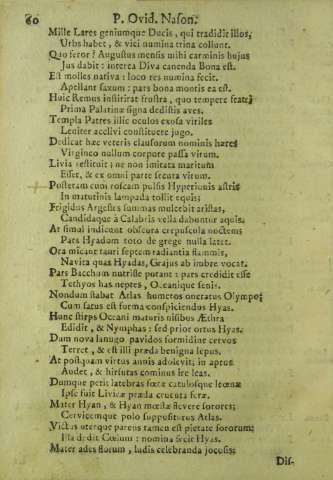 80 P. Ovid. Nason.
Mille Lares geniumque Ducis, qui tradidit illos,
Urbs habet, & vici numina trina collunt.
Quo feror? Augustus mensis mihi carminis hujus
Jus dabit: interea Diva canenda Bona est.
Est moles nativa: loco res nomina fecit.
Apellant saxum: pars bona montis ea est.
Huic Remus institirat frustra, quo tempore fratri
Prima Palatinæ signa dedistis aves.
Templa Patres illic oculos exosa viriles
Leniter acclivi constituere jugo.
Dedicat hæc veteris clausorum nominis hæres
Virgineo nullum corpore passa virum.
Livia restituit: ne non imitata maritum
Esset, & ex omni parte secuta virum.
Posteram cum roseam pulsis Hyperionis astris
In maturinis lampada tollit equis;
Frigidus Argestes summas mulcebit aristas,
Candidaque à Calabris vella dabuntur aquis.
At simul inducent obscura crepuscula noctems
Pars Hyadum toto de grege nulla latet.
Ora micant tauri septem radiantia flammis,
Navita quas Hyadas, Grajus ab imbre vocat.
Pars Bacchum nutrisse putant: pars credidit esse
Tethyos has neptes, Oceanique senis.
Nondum stabat Atlas humeros oneratus Olympo;
Cum satus est forma conspiciendus Hyas.
Hunc stirps Oceani maturis nisibus Æthra
Edidit, & Nymphas: sed prior ortus Hyas.
Dum nova lanugo pavidos formidine cervos
Terret, & est illi præda benigna lepus.
At postquam virtus annis adolevit; in apros
Audet, & hirsutas cominus ire leas.
Dumque petit latebras fœtæ catulosque leænæ
Ipse fuit Livicæ præda cruenta feræ.
Mater Hyan, & Hyan mœstæ flevere sorores;
Cervicemque polo suppositurus Atlas.
Victus uterque parens tamen est pietate sororum;
Illa dedit Cœlum: nomina fecit Hyas.
Mater ades florum, ludis celebranda jocosis;
Dis-